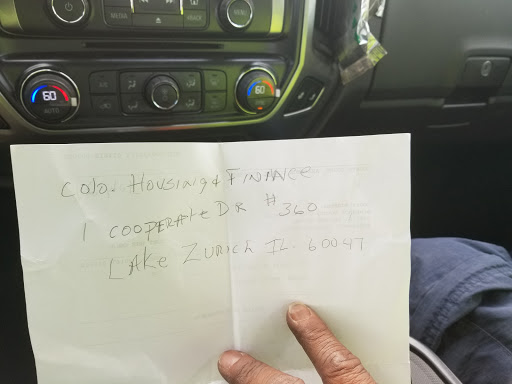 MEDIA
MENU
60
AUTO
60
Colo. Housing & Finance
1 Cooperate Dr # 360
Lake Zurich IL. 60047